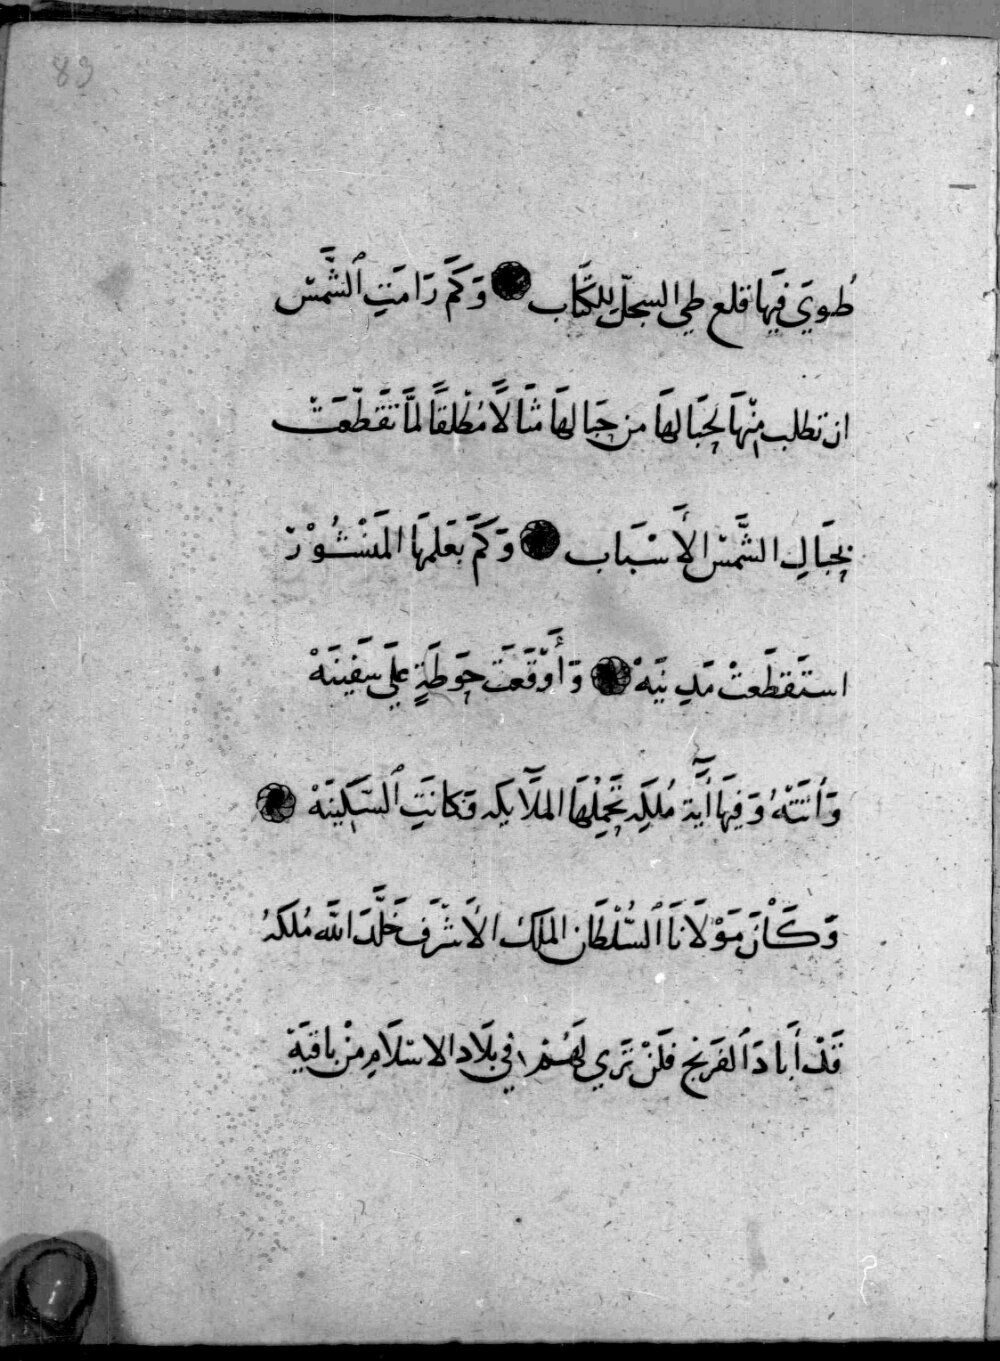 83
طُوِيَ فِيهَا قلع طي السجلّ للكتَاب وَكَمْ رَامَتِ ٱلشَّمْسُ
ان تطلب مِنْهَا لِحِبَالهَا من حِبَالهَا مثَالًا مُطْلقًا لمَّا تقَطّعَتْ
بِحبَالِ الشَّمْس الأَسْبَاب وَكَمْ بقَلمهَا المَنْشُوْر
استَقطَعَتْ مَدِينَهْ وَأَوْقَعَتْ حَوطَةٍ علَى سَفِينَهْ
وَأتَتْهُ وَفِيهَا أٓيَة مُلكِه تَحْمِلُهَا الملَٓايكه فكانَتِ ٱلسَّكِينَهْ
وَكَاْنَ مَوْلَانَا ٱلسُّلْطَان الملك الأَشْرَف خَلَّدَ الله مُلكهُ
قَدْ أَبَادَ ٱلفَرَنج فلَنْ تَرَي لَهُمْ في بلَاد الاسْلَامِ منْ باقيَة